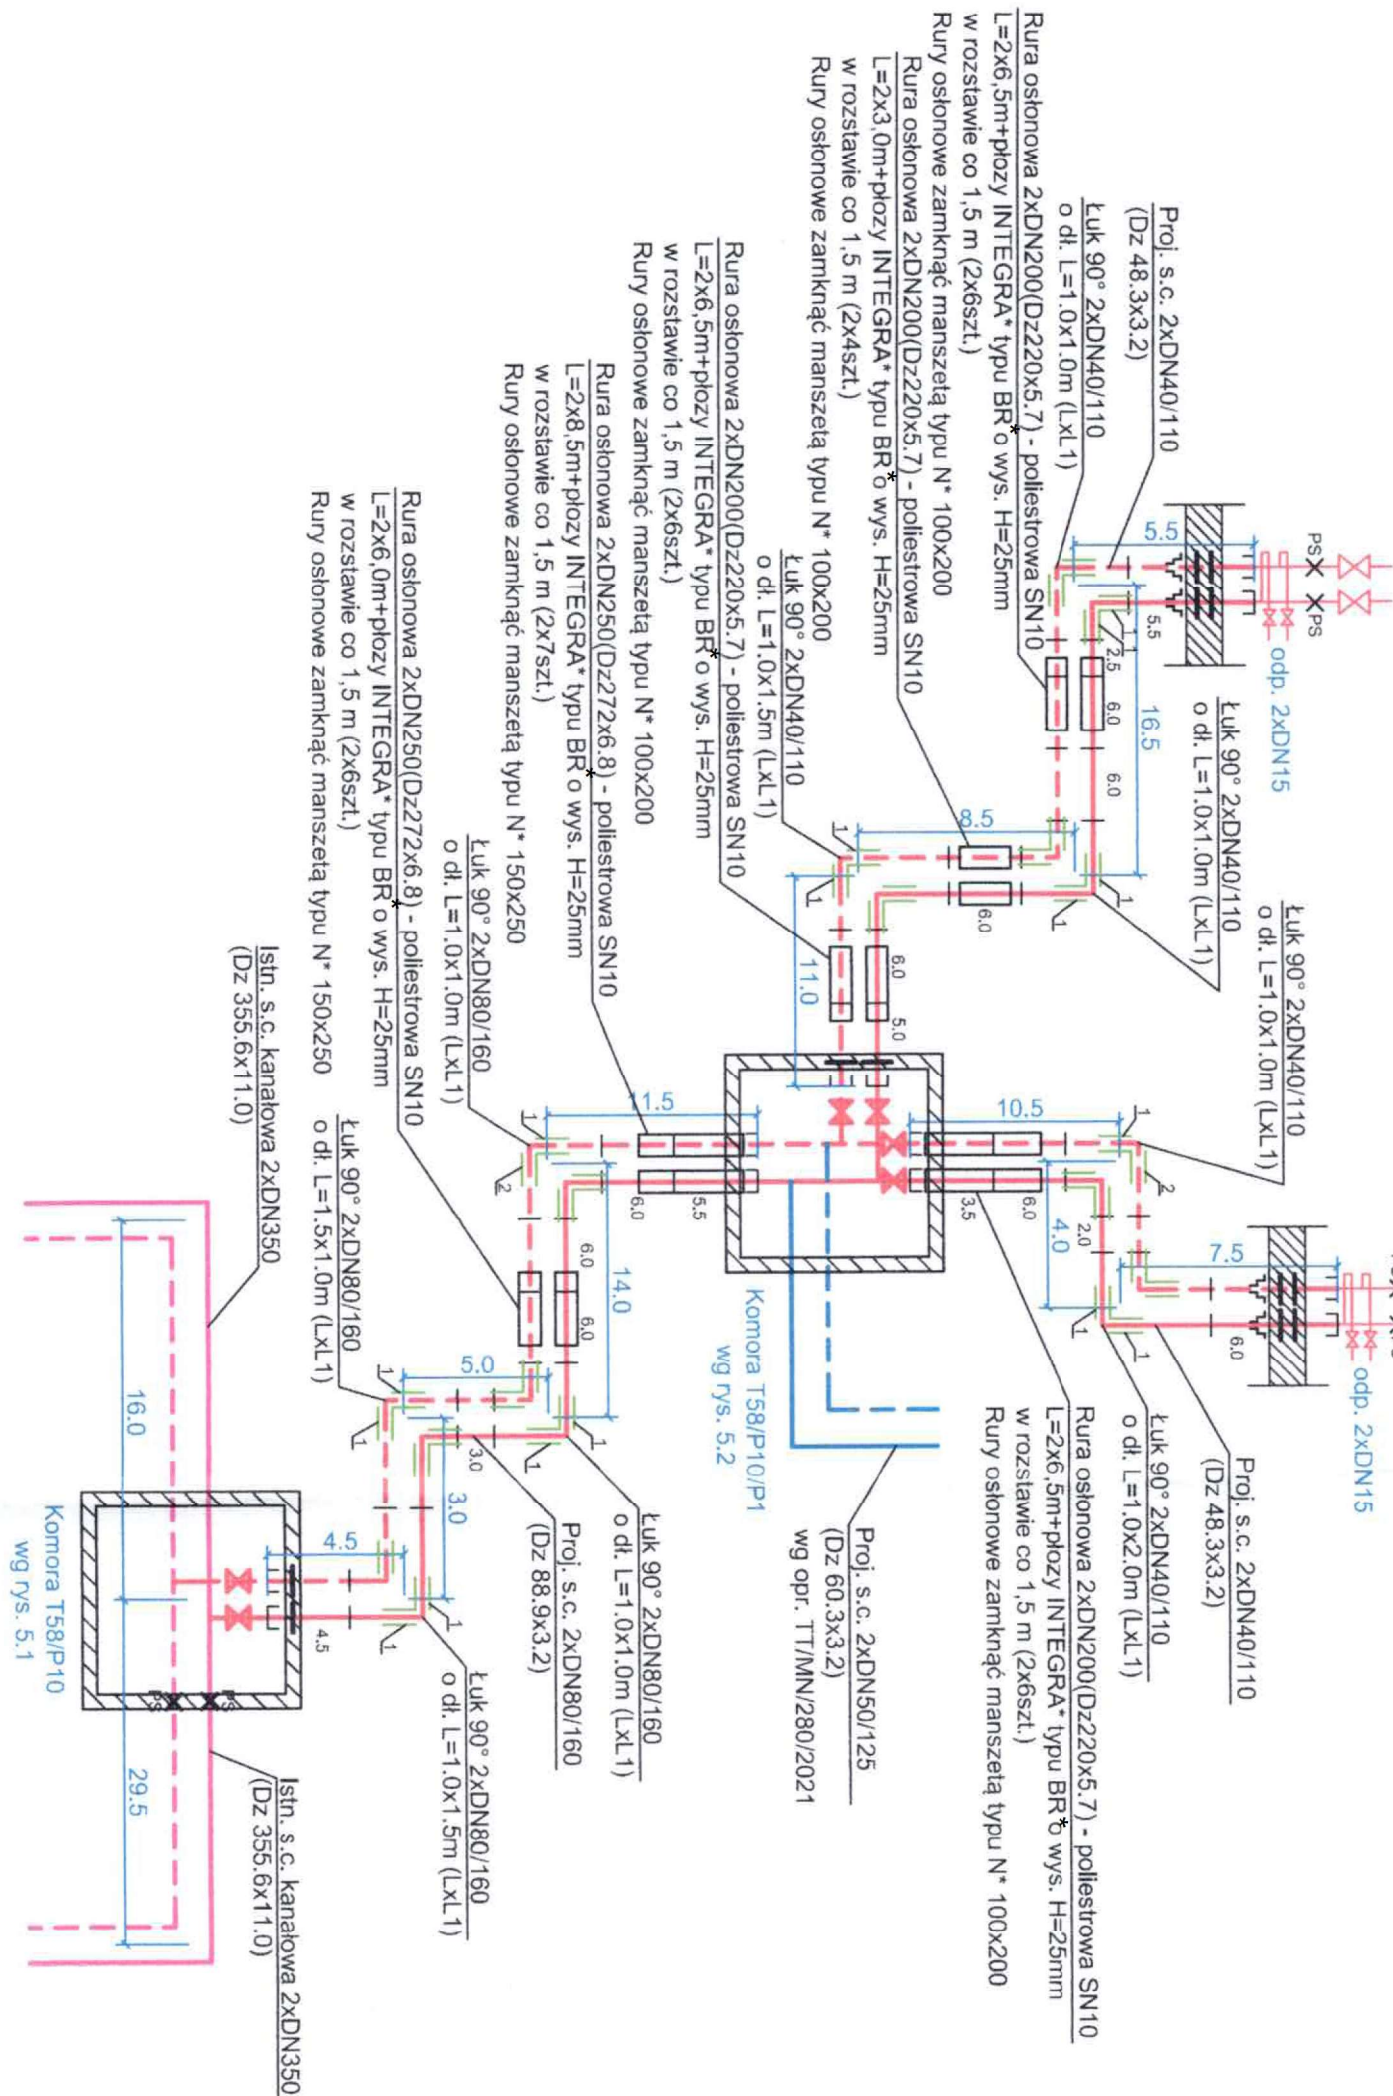 Rura osłonowa 2xDN200(Dz220x5.7) - poliestrowa SN10
L=2x6,5m+płozy INTEGRA* typu BR* o wys. H=25mm
w rozstawie co 1,5 m (2x6szt.)
Rury osłonowe zamknąć manszetą typu N* 100x200
Rura osłonowa 2xDN200(Dz220x5.7) - poliestrowa SN10
L=2x3,0m+płozy INTEGRA* typu BR* o wys. H=25mm
w rozstawie co 1,5 m (2x4szt.)
Rury osłonowe zamknąć manszetą typu N* 100x200
Proj. s.c. 2xDN40/110
(Dz 48.3x3.2)
Łuk 90° 2xDN40/110
o dł. L=1.0x1.0m (LxL1)
Rura osłonowa 2xDN200(Dz220x5.7) - poliestrowa SN10
L=2x6,5m+płozy INTEGRA* typu BR* o wys. H=25mm
w rozstawie co 1,5 m (2x6szt.)
Rury osłonowe zamknąć manszetą typu N* 100x200
Łuk 90° 2xDN40/110
o dł. L=1.0x1.5m (LxL1)
Rura osłonowa 2xDN250(Dz272x6.8) - poliestrowa SN10
L=2x8,5m+płozy INTEGRA* typu BR* o wys. H=25mm
w rozstawie co 1,5 m (2x7szt.)
Rury osłonowe zamknąć manszetą typu N* 150x250
Łuk 90° 2xDN80/160
o dł. L=1.0x1.0m (LxL1)
Rura osłonowa 2xDN250(Dz272x6.8) - poliestrowa SN10
L=2x6,0m+płozy INTEGRA* typu BR* o wys. H=25mm
w rozstawie co 1,5 m (2x6szt.)
Rury osłonowe zamknąć manszetą typu N* 150x250
PS
PS
odp. 2xDN15
5.5
5.5
1
1
2.5
6.0
16.5
6.0
8.5
6.0
1
1
1
1
11.0
6.0
5.0
Łuk 90° 2xDN40/110
o dł. L=1.0x1.0m (LxL1)
Łuk 90° 2xDN40/110
o dł. L=1.0x1.0m (LxL1)
10.5
3.5
6.0
1
2
2.0
4.0
1
1
7.5
6.0
odp. 2xDN15
11.5
6.0
5.5
1
2
6.0
14.0
6.0
Komora T58/P10/P1
wg rys. 5.2
5.0
3.0
1
1
1
1
3.0
4.5
4.5
1
1
Łuk 90° 2xDN80/160
o dł. L=1.5x1.0m (LxL1)
Istn. s.c. kanałowa 2xDN350
(Dz 355.6x11.0)
16.0
29.5
PS
PS
Komora T58/P10
wg rys. 5.1
Proj. s.c. 2xDN40/110
(Dz 48.3x3.2)
Łuk 90° 2xDN40/110
o dł. L=1.0x2.0m (LxL1)
Rura osłonowa 2xDN200(Dz220x5.7) - poliestrowa SN10
L=2x6,5m+płozy INTEGRA* typu BR* o wys. H=25mm
w rozstawie co 1,5 m (2x6szt.)
Rury osłonowe zamknąć manszetą typu N* 100x200
Proj. s.c. 2xDN50/125
(Dz 60.3x3.2)
wg opr. TT/MN/280/2021
Łuk 90° 2xDN80/160
o dł. L=1.0x1.0m (LxL1)
Proj. s.c. 2xDN80/160
(Dz 88.9x3.2)
Łuk 90° 2xDN80/160
o dł. L=1.0x1.5m (LxL1)
Istn. s.c. kanałowa 2xDN350
(Dz 355.6x11.0)